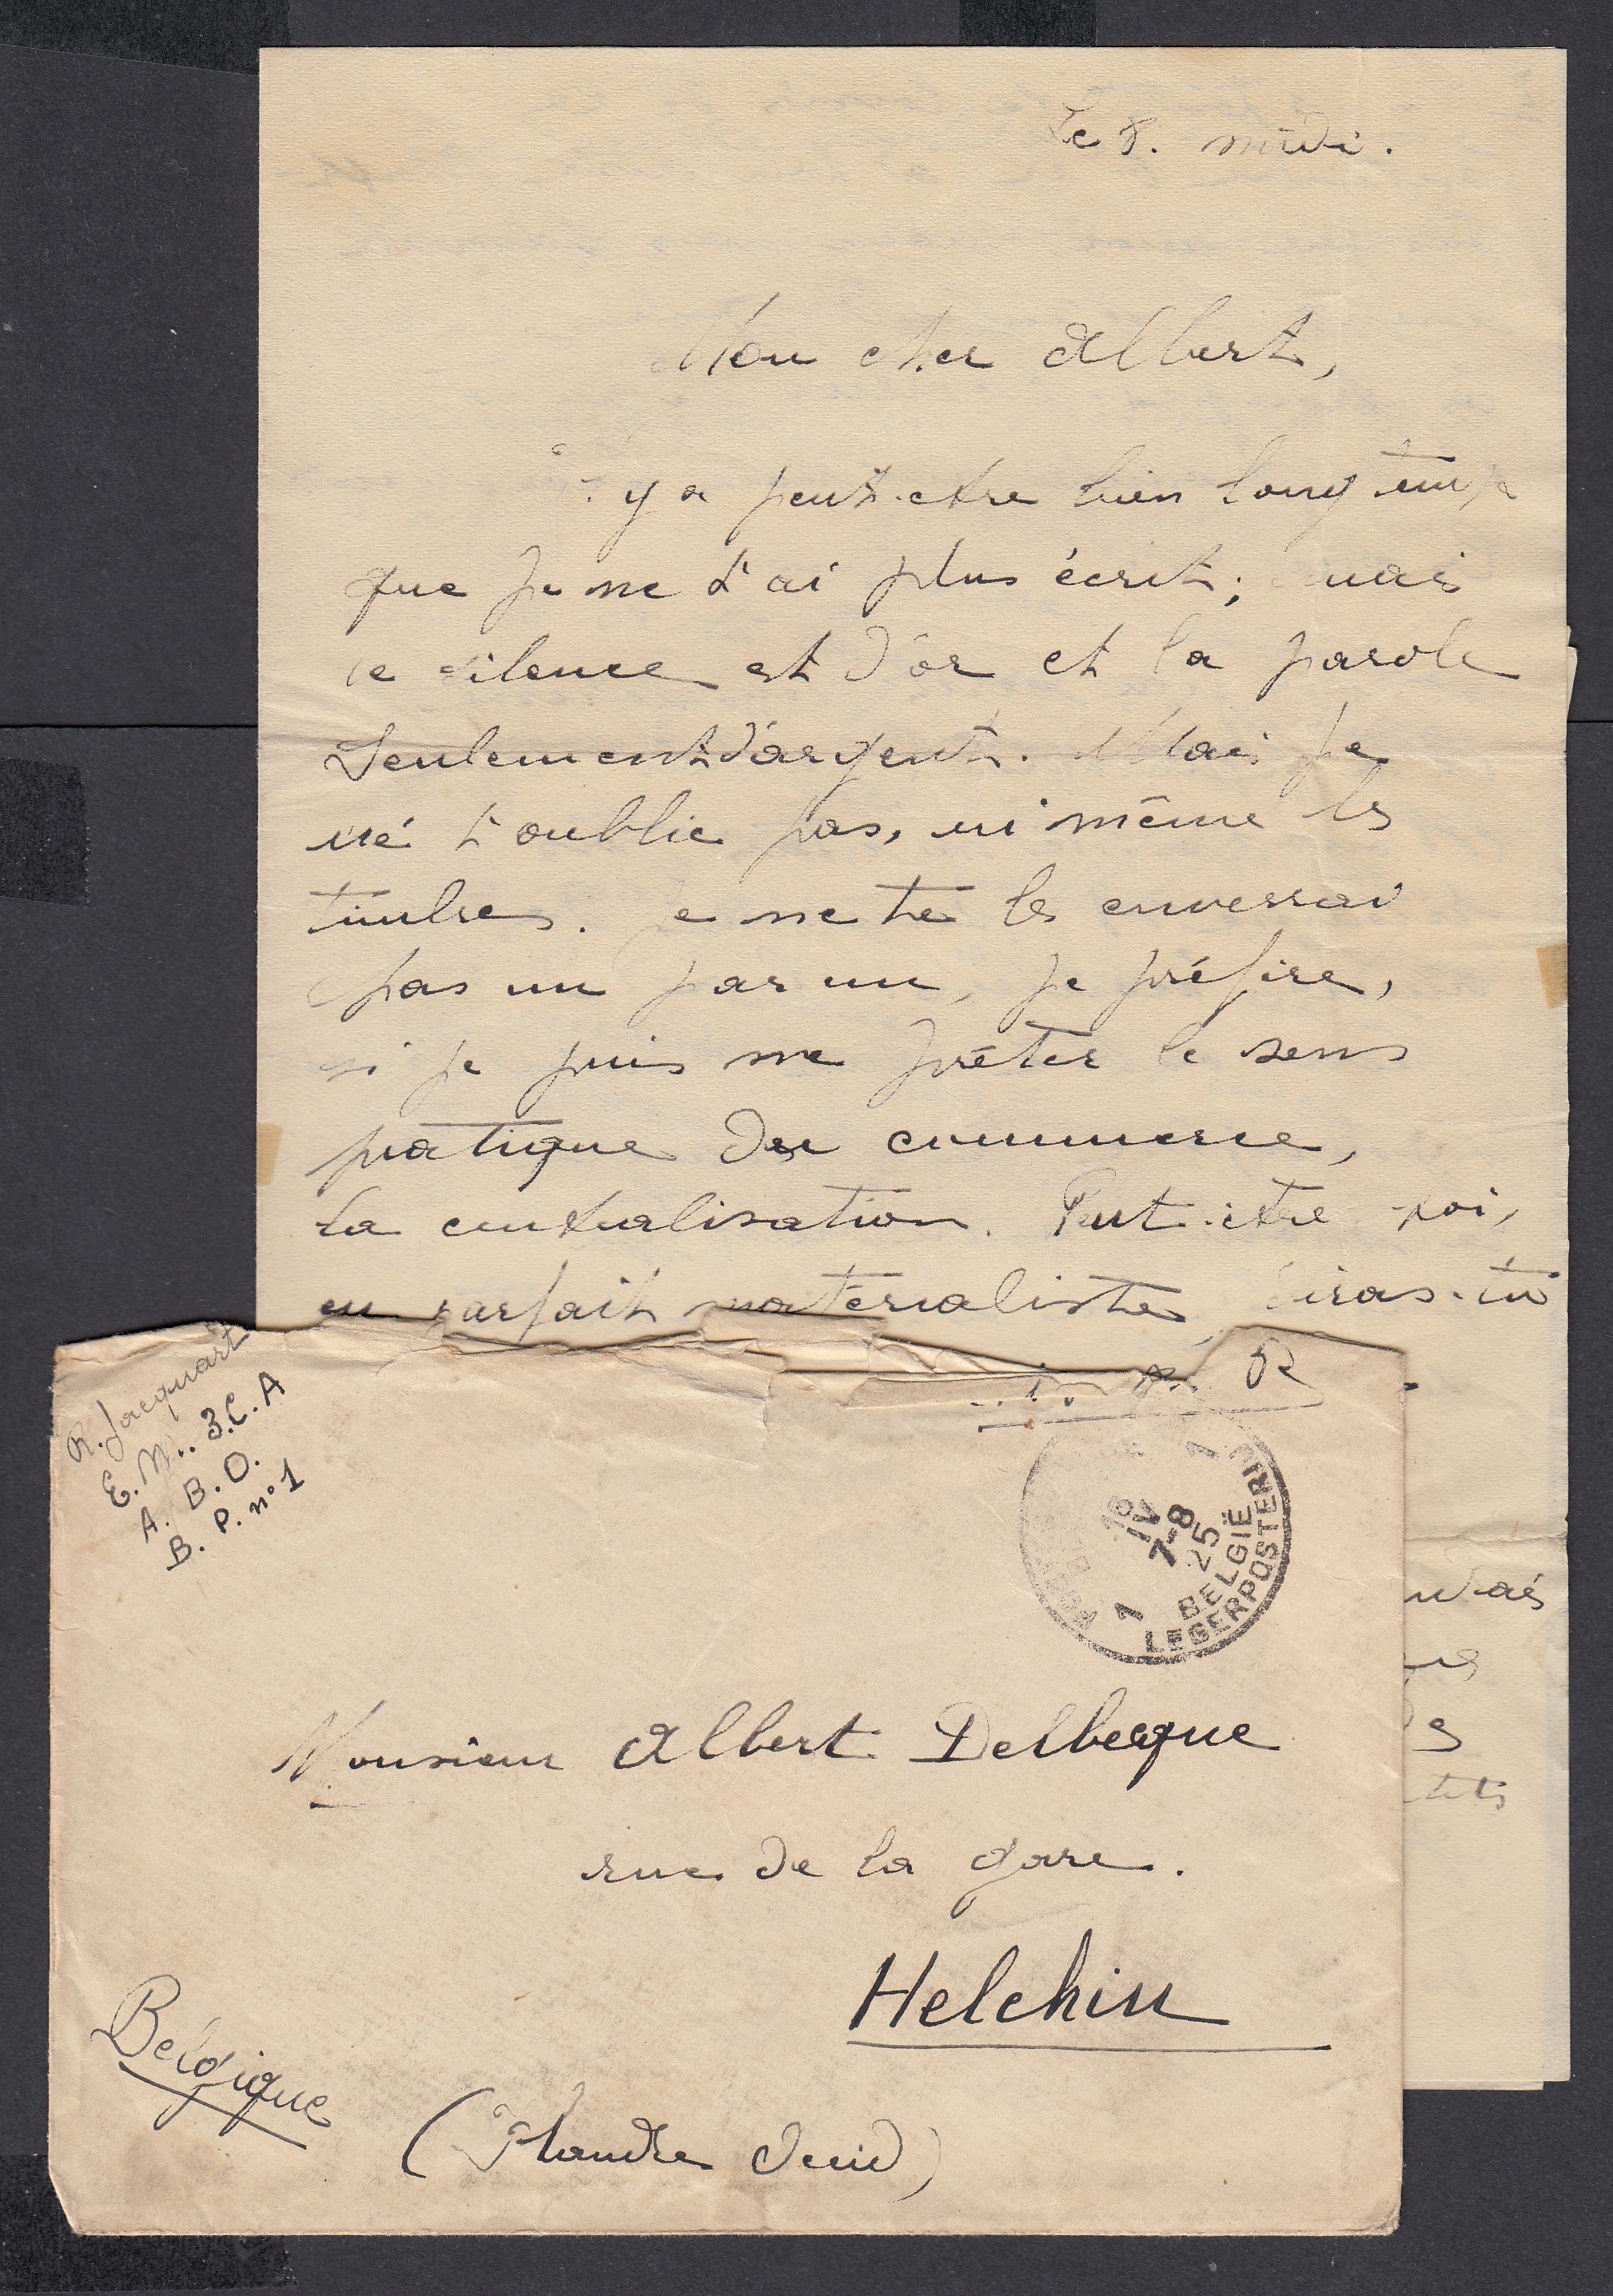 Le 8. midi.
Mon cher Albert,
y a peut-etre bien longtemps
que je ne t'ai plus écrit; mais
le silence est d'or et la parole
seulement d'argent. Mais je
ne t'oublie pas, ni même les
timbres. Je ne te les enverrai
pas un par un, je préfère,
si je puis me prêter le sens
pratique du commerce,
la centralisation. Peut-etre toi,
en parfait matérialiste, diras-tu
R. Jacquart
E. M. 3. C. A
A. B. O.
B. P. n° 1
1
18
IV
7-8
25
1
BELGIË
LEGERPOSTERIJ
Monsieur Albert Delbecque
rue de la gare.
Helchin
Belgique
(Flandre Occid)